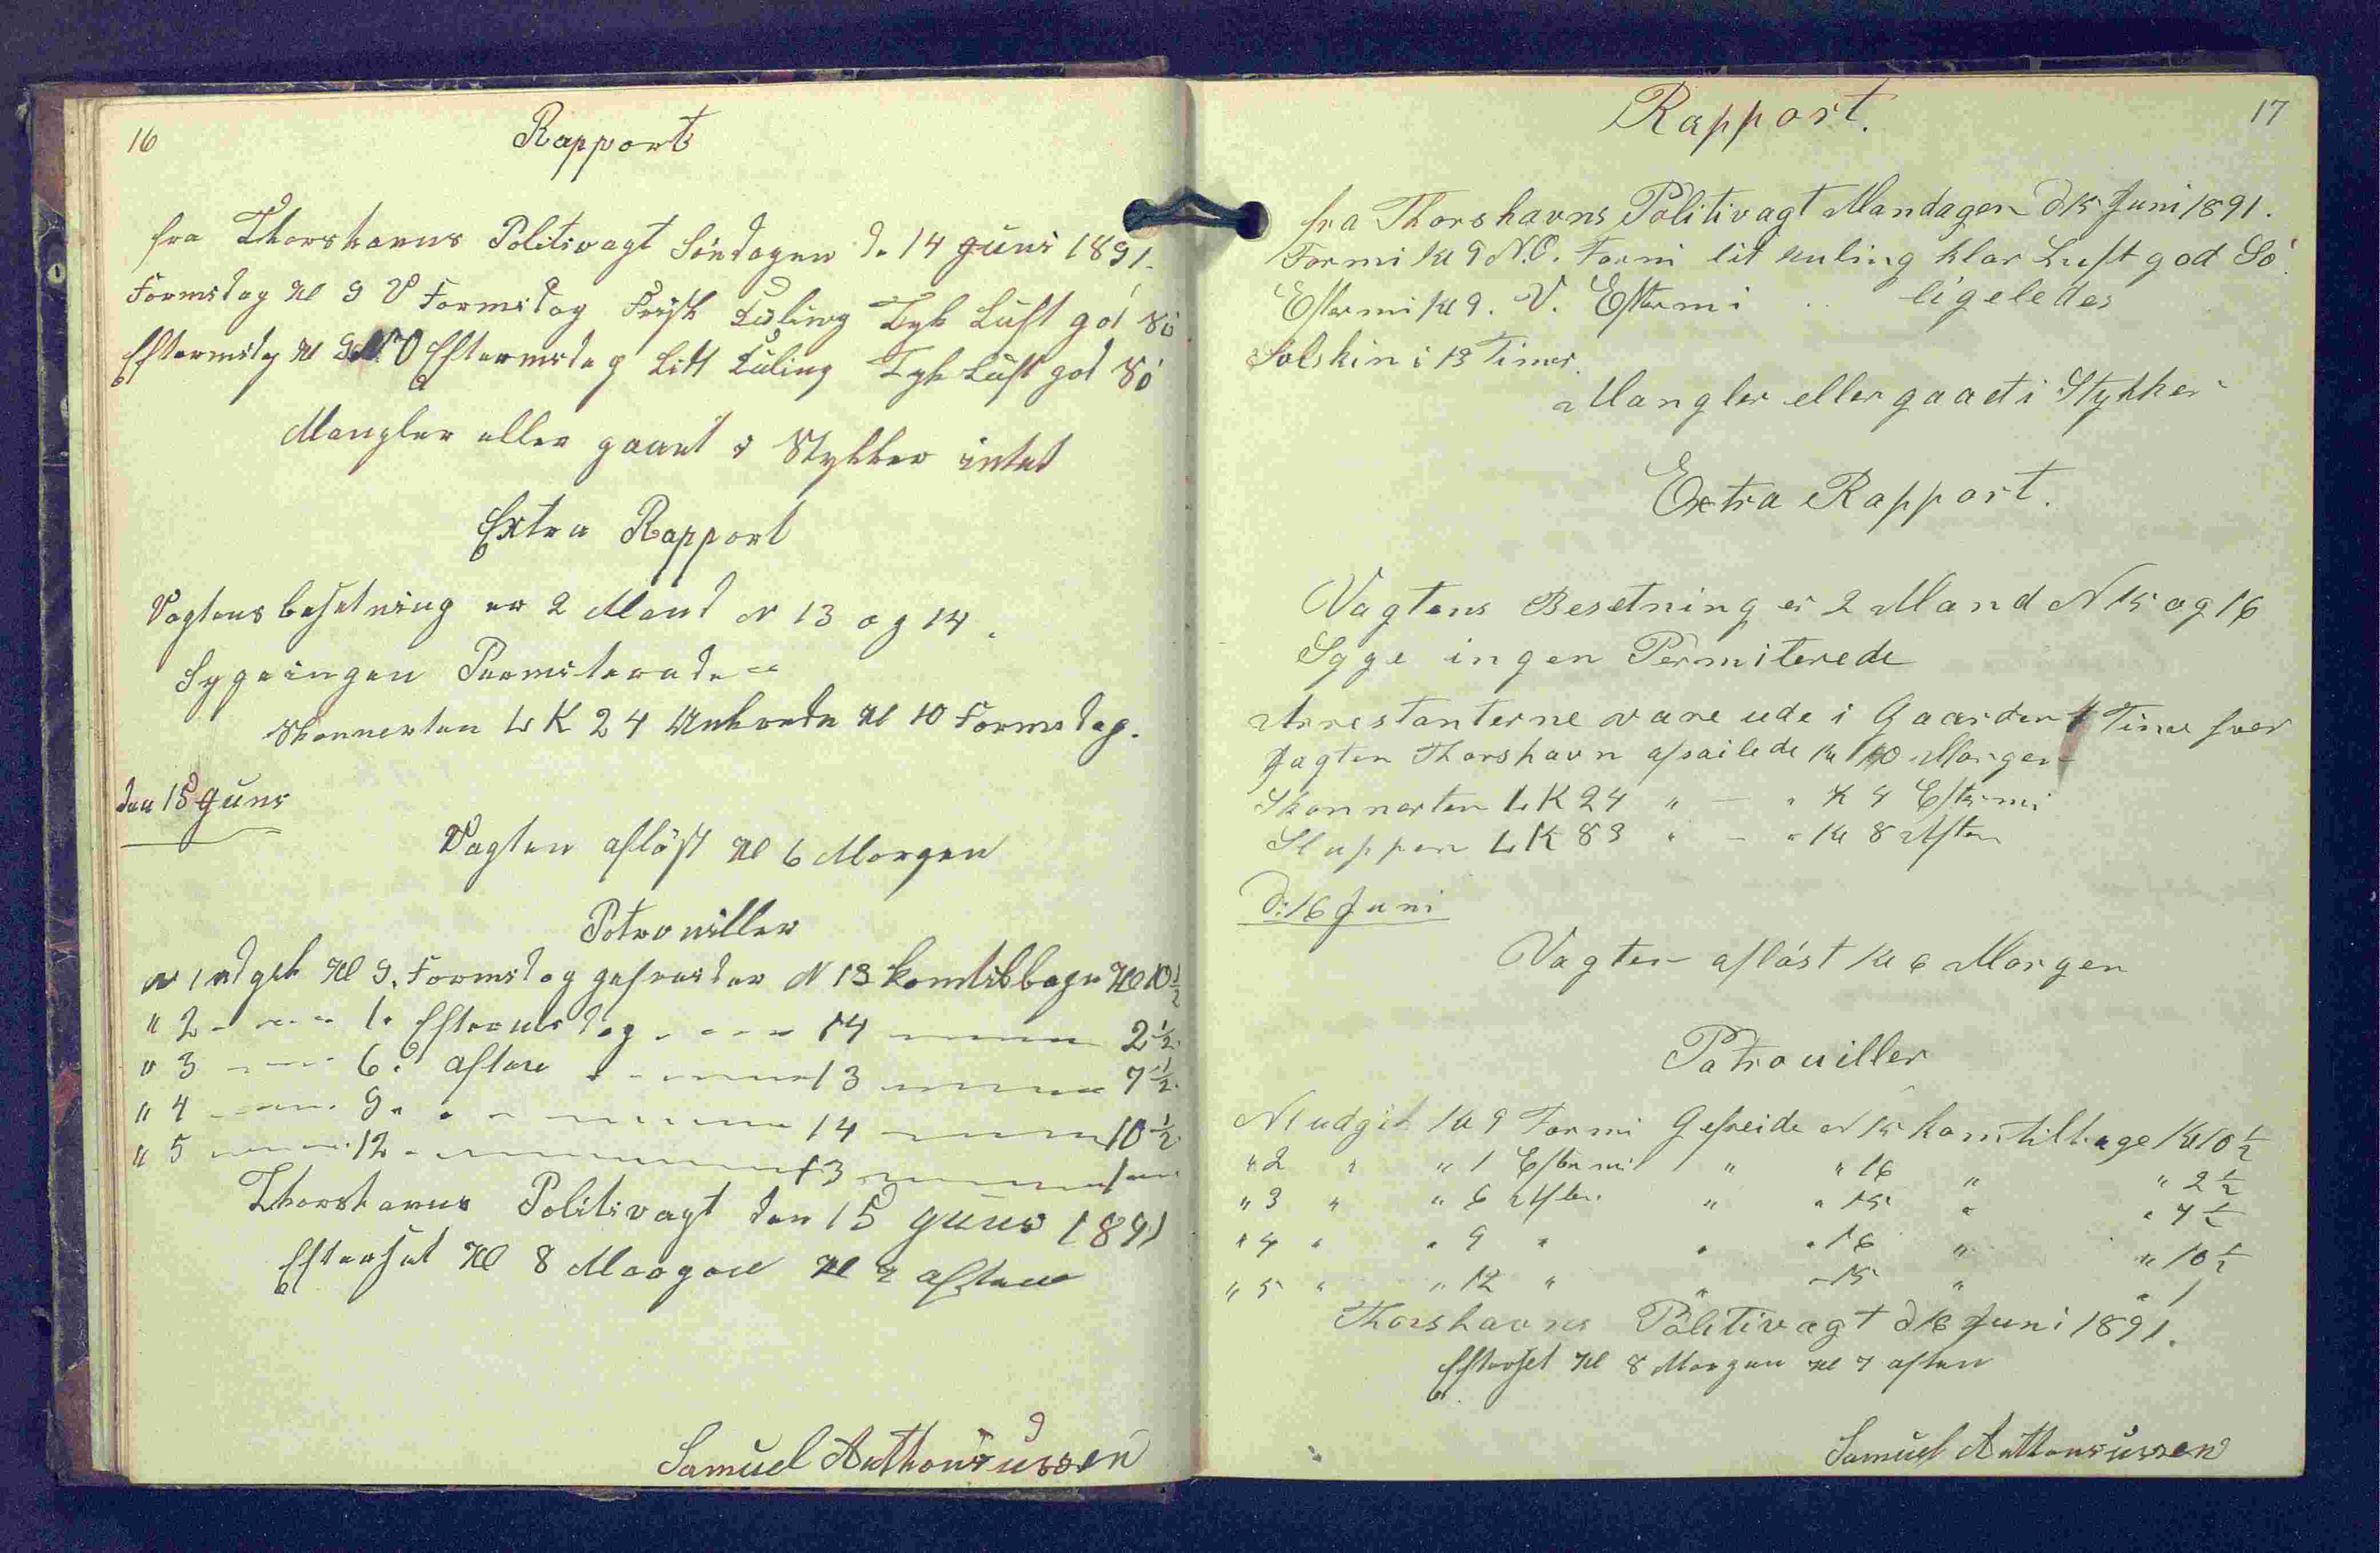 16
Rapport
fra Thorshavns Politivagt Söndagen d. 14 Juni 1891.
Formidag Kl 9 V Formidag Frisk Kuling Tyk Luft god Sö
Eftermidag Kl 9 NO Eftermidag Litt Kuling Tyk Luft god Sö
Mangler eller gaaet i Stykker intet
Extra Rapport
Vagtens besetning er 2 Mand N 13 og 14.
Syge ingen Permiterede "
Skonnerten LK 24 Ankrede Kl 10 Formidag.
den 15 Juni
Vagten aflöst Kl 6 Morgen
Patrouiller
N 1 udgik Kl 9. Formidag gefreider N 13 komtilbage Kl 10 1/2
" 2 - - - 1. Eftermidag - - - 14 - - - 2 1/2
" 3 - - - 6. aften - - - 13 - - - 7 1/2
" 4 - - - 9. " - - - 14 - - - 10 1/2
" 5 - - - 12 - - - 13 - - - 1
Thorshavns Politivagt den 15 Juni 1891
Efterset Kl 8 Morgen Kl 7 aften
Samuel Anthoniussen
17
Rapport.
fra Thorshavns Politivagt Mandagen d 15 Juni 1891.
Formi Kl 9 N.O. Formi lit Kuling klar Luft god Sö.
Eftermi Kl 9. V. Eftermi " ligeledes
Solskin i 13 Timer.
Mangler eller gaaet i Stykker "
Extra Rapport.
Vagtens Besetning er 2 Mand N 15 og 16
Syge ingen Permiterede
Arrestanterne vare ude i Gaarden Time hver
Jagten Thorshavn afsailede Kl 10 Morgen
Skonnerten LK 24 " — " K 4 Eftermi
Sluppen LK 83 " — " Kl 8 Aften
D: 16 Juni
Vagten aflöst Kl 6 Morgen
Patrouiller
N 1 udgik Kl 9 Formi Gefreide N 15 komtilbage Kl 10 1/2
" 2 " " 1 Eftermi " " 16 " " 2 1/2
" 3 " " 6 Aften " " 15 " " 7 1/2
" 4 " " 9 " " " 16 " " 10 1/2
" 5 " " 12 " " - 15 " " 1
Thorshavns Politivagt d 16 Juni 1891.
Efterset Kl 8 Morgen Kl 7 aften
Samuel Anthoniussen